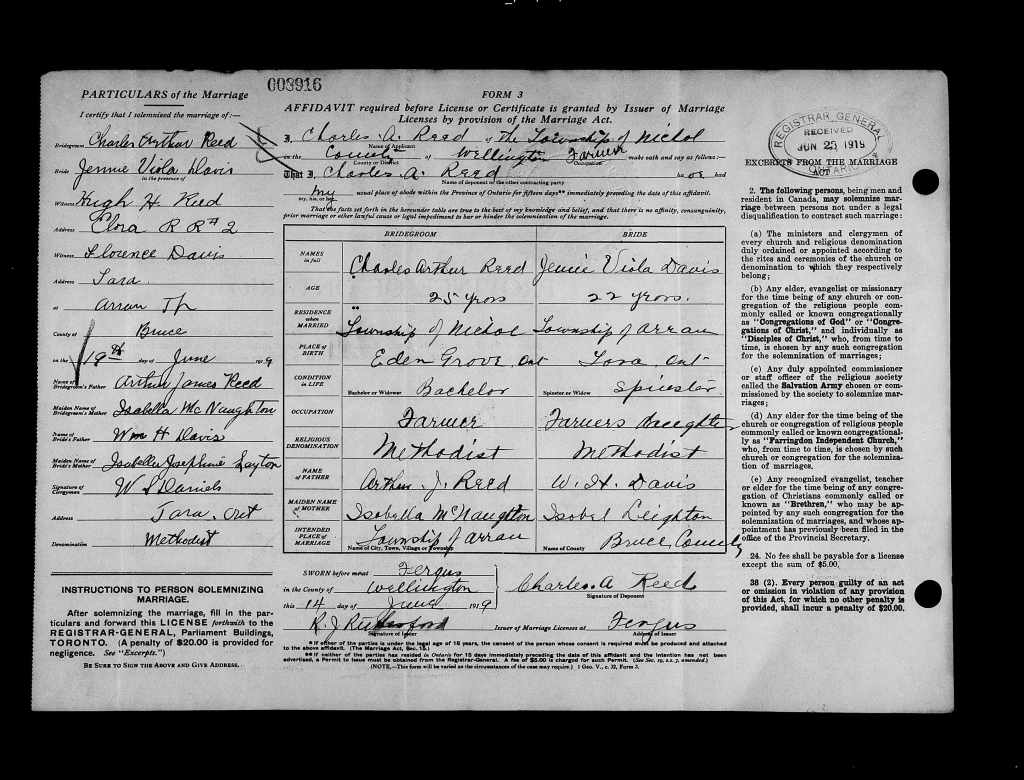 008916
PARTICULARS of the Marriage
I certify that I solemnised the marriage of:—
Bridegroom Charles Arthur Reed
Bride Jennie Viola Davis
in the presence of
Witness Hugh H. Reed
Address Elora R R # 2
Witness Florence Davis
Address Tara
at Arran Tp
County of Bruce
in the 19th day of June 1919
Name of Bridegroom's Father Arthur James Reed
Maiden Name of Bridegroom's Mother Isabella McNaughton
Name of Bride's Father Wm H Davis
Maiden Name of Bride's Mother Isabella Josephine Layton
Signature of Clergyman W S Daniels
Address Tara. Ont
Denomination Methodist
INSTRUCTIONS TO PERSON SOLEMNIZING
MARRIAGE.
After solemnizing the marriage, fill in the par-
ticulars and forward this LICENSE forthwith to the
REGISTRAR-GENERAL, Parliament Buildings,
TORONTO. (A penalty of $20.00 is provided for
negligence. See "Excerpts.")
BE SURE TO SIGN THE ABOVE AND GIVE ADDRESS.
FORM 3
AFFIDAVIT required before License or Certificate is granted by Issuer of Marriage
Licenses by provision of the Marriage Act.
I, Charles A. Reed of the Township of Nichol
Name of Applicant
in the County of Wellington Farmer make oath and say as follows:—
County or District Occupation
That I, Charles A. Reed had
Name of deponent of the other contracting party
my usual place of abode within the Province of Ontario for fifteen days** immediately preceding the date of this affidavit.
my, his, or her
That the facts set forth in the hereunder table are true to the best of my knowledge and belief, and that there is no affinity, consanguinity,
prior marriage or other lawful cause or legal impediment to bar or hinder the solemnization of the marriage.
BRIDEGROOM BRIDE
NAMES in full Charles Arthur Reed Jennie Viola Davis
AGE 25 years 22 years.
RESIDENCE when MARRIED Township of Nichol Township of Arran
PLACE OF BIRTH Eden Grove, Ont Tara, Ont
CONDITION IN LIFE Bachelor or Widower Bachelor Spinster or Widow Spinster
OCCUPATION Farmer Farmers daughter
RELIGIOUS DENOMINATION Methodist Methodist
NAME OF FATHER Arthur. J. Reed W. H. Davis
MAIDEN NAME of MOTHER Isabella McNaughton Isobel Leighton
INTENDED PLACE OF MARRIAGE Township of Arran Bruce County
Name of City, Town, Village or Township Name of County
SWORN before me at Fergus
in the County of Wellington Charles. A Reed
Signature of Deponent
this 14 day of June 1919
R. J. Rutherford Issuer of Marriage Licenses at Fergus
Signature of Issuer Address of Issuer
* If either of the parties is under the legal age of 18 years, the consent of the person whose consent is required must be produced and attached
to the above affidavit. (The Marriage Act, Sec. 15.)
** If neither of the parties has resided in Ontario for 15 days immediately preceding the date of this affidavit and the intention has not been
advertised, a Permit to issue must be obtained from the Registrar-General. A fee of $5.00 is charged for such Permit. (See Sec. 19, s.s. 7, amended.)
(NOTE.—This form will be varied as the circumstances of the case may require.) 1 Geo. V., c. 32, Form 3.
REGISTRAR GENERAL
RECEIVED
JUN 25 1919
ONTARIO
EXCERPTS FROM THE MARRIAGE
ACT
2. The following persons, being men and
resident in Canada, may solemnize mar-
riage between persons not under a legal
disqualification to contract such marriage:
(a) The ministers and clergymen of
every church and religious denomination
duly ordained or appointed according to
the rites and ceremonies of the church or
denomination to which they respectively
belong;
(b) Any elder, evangelist or missionary
for the time being of any church or con-
gregation of the religious people com-
monly called or known congregationally
as "Congregations of God" or "Congre-
gations of Christ," and individually as
"Disciples of Christ," who, from time to
time, is chosen by any such congregation
for the solemnization of marriages;
(c) Any duly appointed commissioner
or staff officer of the religious society
called the Salvation Army chosen or com-
missioned by the society to solemnize mar-
riages;
(d) Any elder for the time being of the
church or congregation of religious people
commonly called or known congregational-
ly as "Farringdon Independent Church,"
who, from time to time, is chosen by such
church or congregation for the solemniza-
tion of marriages.
(e) Any recognized evangelist, teacher
or elder for the time being of any congre-
gation of Christians commonly called or
known as "Brethren," who may be ap-
pointed by any such congregation for the
solemnization of marriages, and whose ap-
pointment has previously been filed in the
office of the Provincial Secretary.
24. No fee shall be payable for a license
except the sum of $5.00.
38 (2). Every person guilty of an act
or omission in violation of any provision
of this Act, for which no other penalty is
provided, shall incur a penalty of $20.00.